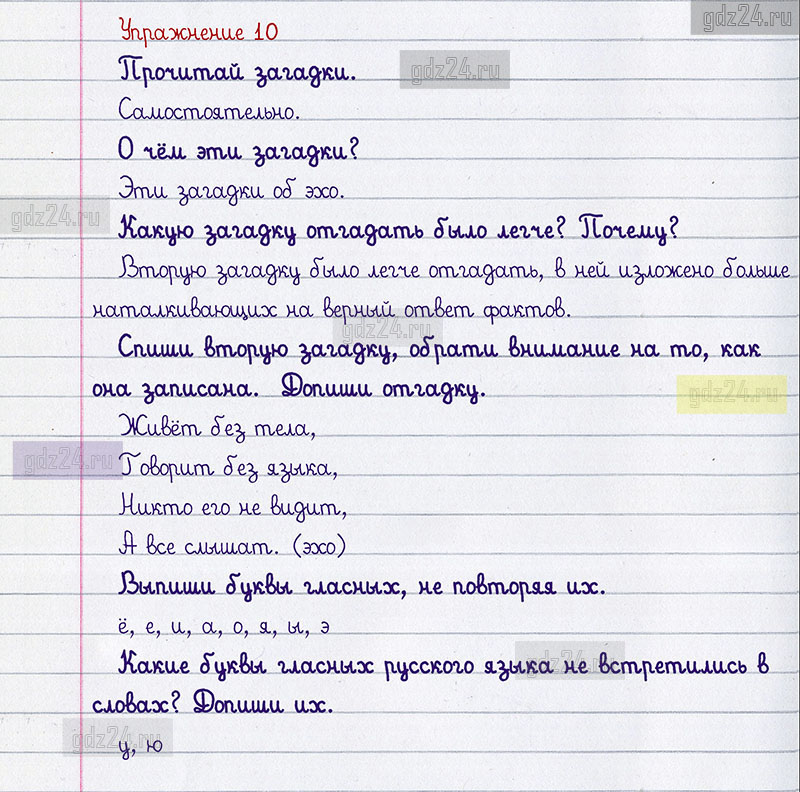 gdz24.ru
Упражнение 10
Прочитай загадки.
gdz24.ru
Самостоятельно.
О чём эти загадки?
Эти загадки об эхо.
gdz24.ru
Какую загадку отгадать было легче? Почему?
Вторую загадку было легче отгадать, в ней изложено больше
наталкивающих на верный ответ фактов.
gdz24.ru
Спиши вторую загадку, обрати внимание на то, как
она записана. Допиши отгадку.
gdz24.ru
Живёт без тела,
gdz24.ru
Говорит без языка,
Никто его не видит,
А все слышат. (эхо)
Выпиши буквы гласных, не повторяя их.
ё, е, и, а, о, я, ы, э
gdz24.ru
Какие буквы гласных русского языка не встретились в
словах? Допиши их.
gdz24.ru
у, ю